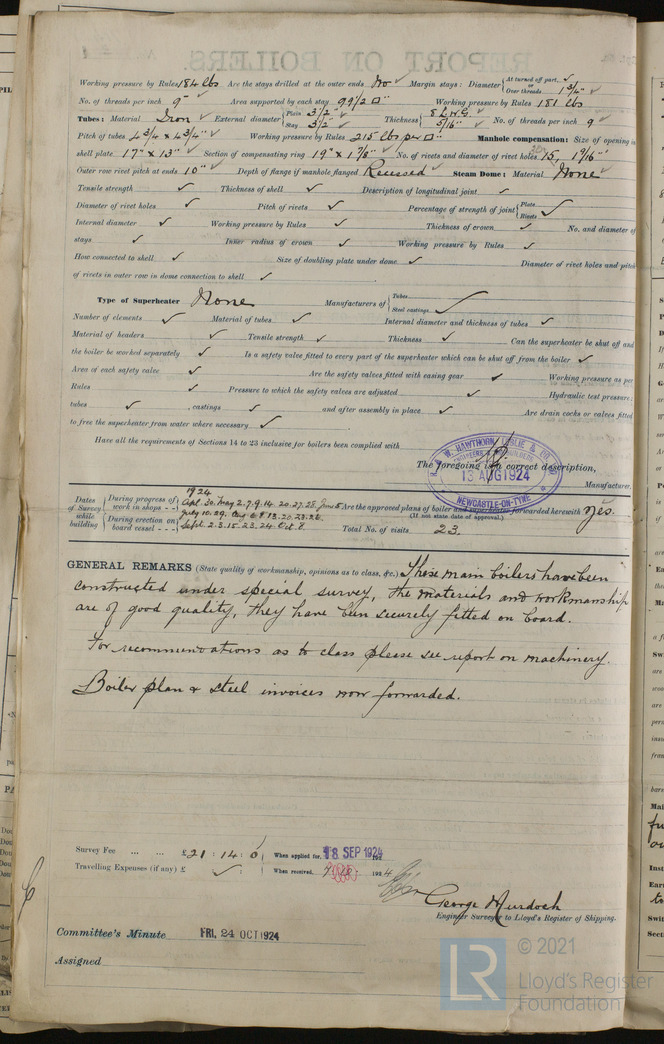 REPORT ON BOILERS.
Working pressure by Rules 184 lbs Are the stays drilled at the outer ends No ✓ Margin stays: Diameter { At turned off part, ✓ or Over threads 1 3/4" ✓
No. of threads per inch 9 ✓ Area supported by each stay 99/2 □" ✓ Working pressure by Rules 181 lbs
Tubes: Material Iron ✓ External diameter { Plain 3 1/2" ✓ Stay 3 1/2" ✓ Thickness { 8 L.W.G. ✓ 5/16" ✓ No. of threads per inch 9 ✓
Pitch of tubes 4 3/4 x 4 3/4" ✓ Working pressure by Rules 215 lbs per □" ✓ Manhole compensation: Size of opening in
shell plate 17" x 13" ✓ Section of compensating ring 19" x 1 7/8" ✓ No. of rivets and diameter of rivet holes 1 9/16"
Outer row rivet pitch at ends 10" ✓ Depth of flange if manhole flanged ✓ Steam Dome: Material None ✓
Tensile strength ✓ Thickness of shell ✓ Description of longitudinal joint ✓
Diameter of rivet holes ✓ Pitch of rivets ✓ Percentage of strength of joint { Plate Rivets ✓
Internal diameter ✓ Working pressure by Rules ✓ Thickness of crown ✓ No. and diameter of
stays ✓ Inner radius of crown ✓ Working pressure by Rules ✓
How connected to shell ✓ Size of doubling plate under dome ✓ Diameter of rivet holes and pitch
of rivets in outer row in dome connection to shell ✓
Type of Superheater None Manufacturers of { Tubes Steel castings ✓
Number of elements ✓ Material of tubes ✓ Internal diameter and thickness of tubes ✓
Material of headers ✓ Tensile strength ✓ Thickness ✓ Can the superheater be shut off and
the boiler be worked separately ✓ Is a safety valve fitted to every part of the superheater which can be shut off from the boiler ✓
Area of each safety valve ✓ Are the safety valves fitted with easing gear ✓ Working pressure as per
Rules ✓ Pressure to which the safety valves are adjusted ✓ Hydraulic test pressure:
tubes ✓, castings ✓ and after assembly in place ✓ Are drain cocks or valves fitted
to free the superheater from water where necessary ✓
Have all the requirements of Sections 14 to 23 inclusive for boilers been complied with
R. & W. HAWTHORN, LESLIE & CO. LD.
ENGINEERS & SHIPBUILDERS
13 AUG 1924
NEWCASTLE-ON-TYNE
The foregoing is a correct description,
Manufacturer.
Dates of Survey while building
1924
During progress of work in shops - - Apl. 30. May 2. 7. 9. 14. 20. 27. 28. June 5
July 10. 29.
During erection on board vessel - - - Sept. 2. 3. 15. 23. 24 Oct. 8.
Are the approved plans of boiler and superheater forwarded herewith Yes.
(If not state date of approval.)
Total No. of visits 23.
GENERAL REMARKS (State quality of workmanship, opinions as to class, &c.) These main boilers have been
constructed under special survey, the materials and workmanship
are of good quality, they have been securely fitted on board.
For recommendations as to class please see report on machinery.
Boiler plan & steel invoices now forwarded.
Survey Fee ... ... £21 : 14 : 0 When applied for, 18 SEP 1924
Travelling Expenses (if any) £ ✓ : When received, 1924
George Murdoch
Engineer Surveyor to Lloyd's Register of Shipping.
Committee's Minute FRI. 24 OCT 1924
Assigned
LR © 2021
Lloyd's Register
Foundation